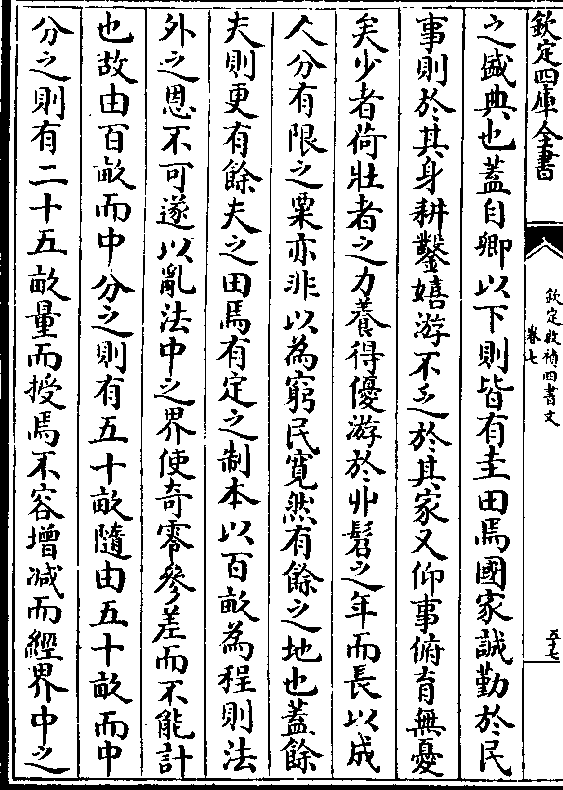 欽定四庫全書
欽定啟禎四書文
卷七
五十七
之盛典也蓋自卿以下則皆有圭田焉國家誠勤於民
事則於其身耕鑿嬉游不乏於其家又仰事俯育無憂
矣少者荷壯者之力養得優游於丱髫之年而長以成
人分有限之粟亦非以為窮民寛然有餘之地也蓋餘
夫則更有餘夫之田焉有定之制本以百畝為程則法
外之恩不可遂以亂法中之界使奇零參差而不能計
也故由百畝而中分之則有五十畝隨由五十畝而中
分之則有二十五畝量而授焉不容增减而經界中之